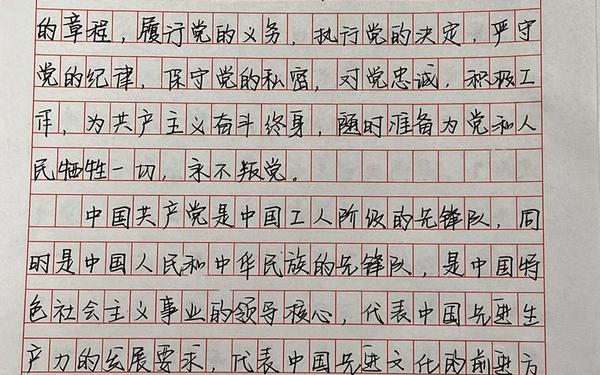 的章程，履行党的义务，执行党的决定，严守
党的纪律，保守党的私密，对党忠诚，积极工
作，为共产主义奋斗终身，随时准备为党和人
民牺牲一切，永不叛党。
中国共产党是中国工人阶级的先锋队，同
时是中国人民和中华民族的先锋队，是中国特
色社会主义事业的领导核心，代表中国先进生
产力的发展要求，代表中国先进文化的前进方